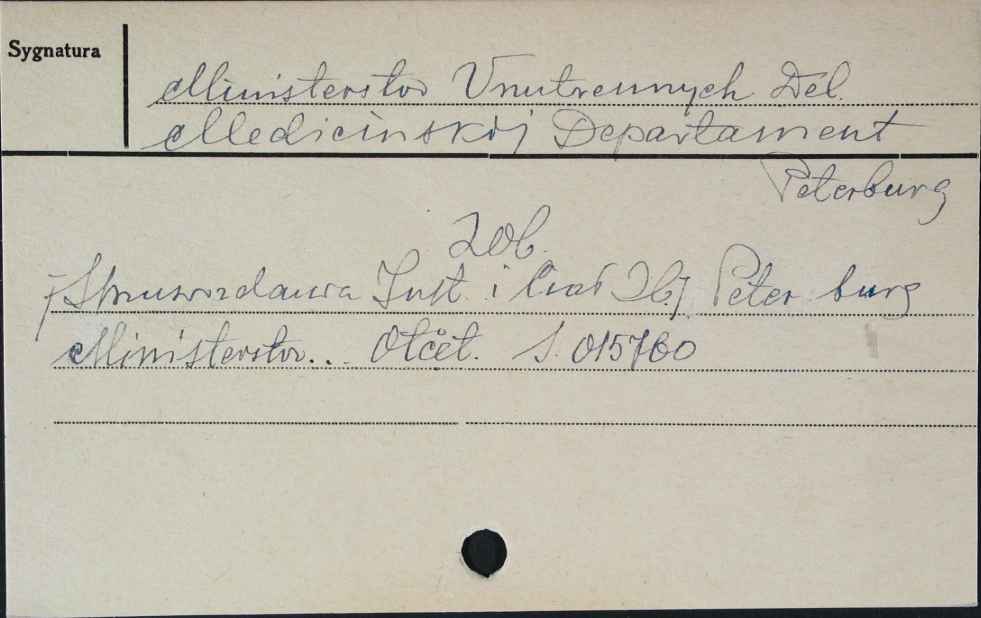 Sygnatura
Ministerstvo Vnutrennych Del.
Medicinskij Departament
Peterburg
Zob.
Inst. i Peterburg
Ministerstvo... Otčët. S. 015760